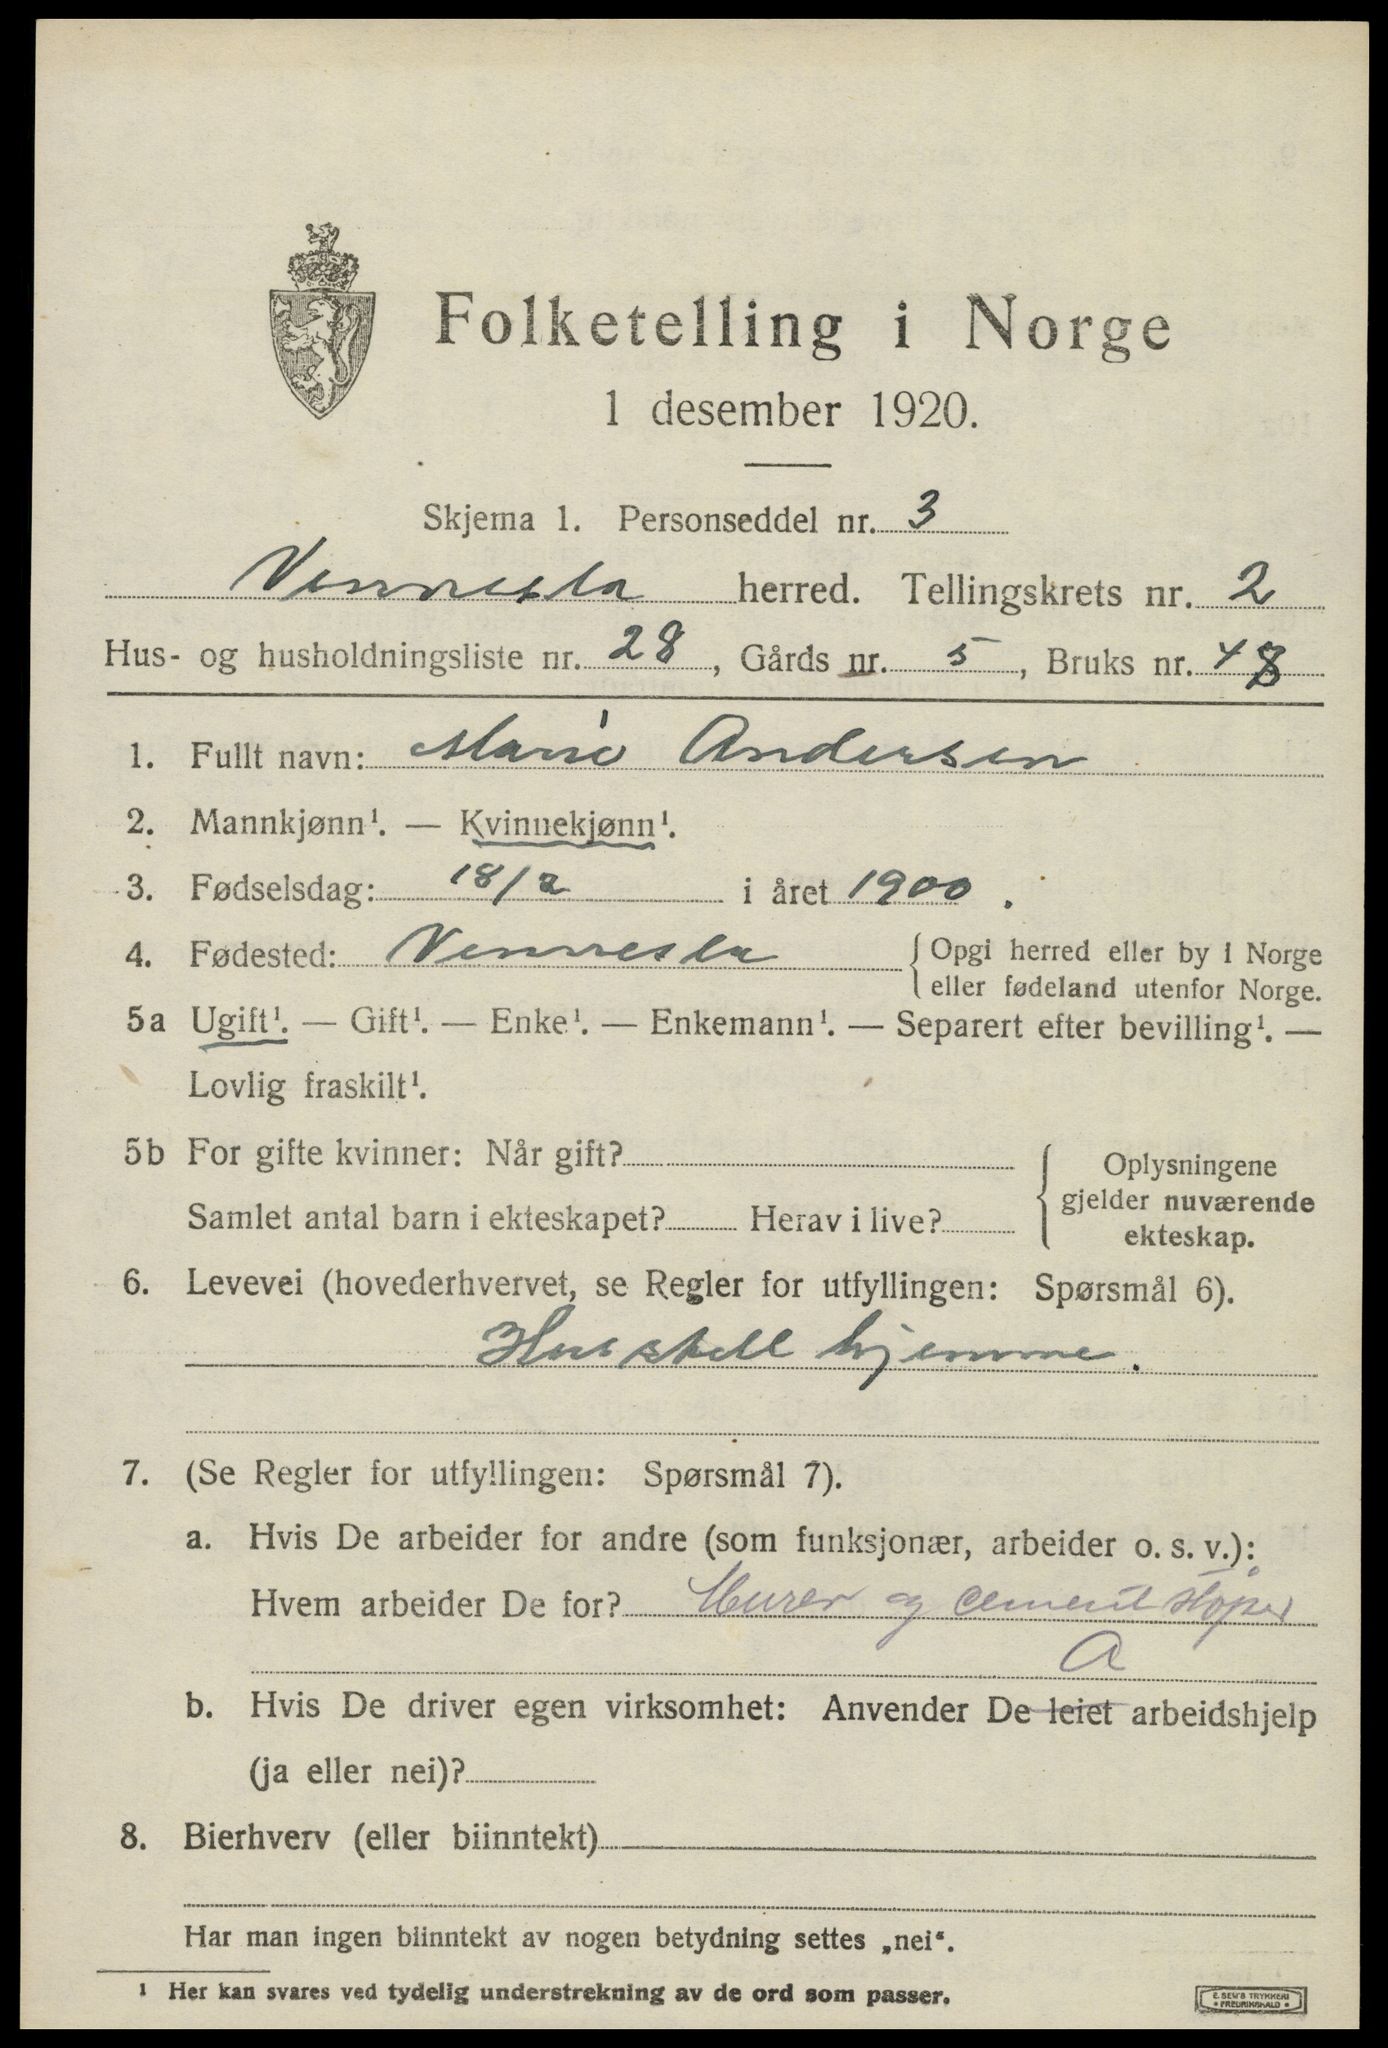 Folketelling i Norge
1 desember 1920.
Skjema 1. Personseddel nr. 3
Vennesla herred. Tellingskrets nr. 2
Hus- og husholdningsliste nr. 28, Gårds nr. 5, Bruks nr. 48
1. Fullt navn: Marie Andersen
2. Mannkjønn¹. — Kvinnekjønn¹.
3. Fødselsdag: 18/2 i året 1900.
4. Fødested: Vennesla {Opgi herred eller by i Norge
eller fødeland utenfor Norge.
5a Ugift¹. — Gift¹. — Enke¹. — Enkemann¹. — Separert efter bevilling¹. —
Lovlig fraskilt¹.
5b For gifte kvinner: Når gift?
Samlet antal barn i ekteskapet? Herav i live?
{Oplysningene
gjelder nuværende
ekteskap.
6. Levevei (hovederhvervet, se Regler for utfyllingen: Spørsmål 6).
Husstell hjemme.
7. (Se Regler for utfyllingen: Spørsmål 7).
a. Hvis De arbeider for andre (som funksjonær, arbeider o. s. v.):
Hvem arbeider De for? Murer og cementstøper
A
b. Hvis De driver egen virksomhet: Anvender De leiet arbeidshjelp
(ja eller nei)?
8. Bierhverv (eller biinntekt)
Har man ingen biinntekt av nogen betydning settes „nei“.
¹ Her kan svares ved tydelig understrekning av de ord som passer.
E. SEM'S TRYKKERI
• FREDRIKSHALD •